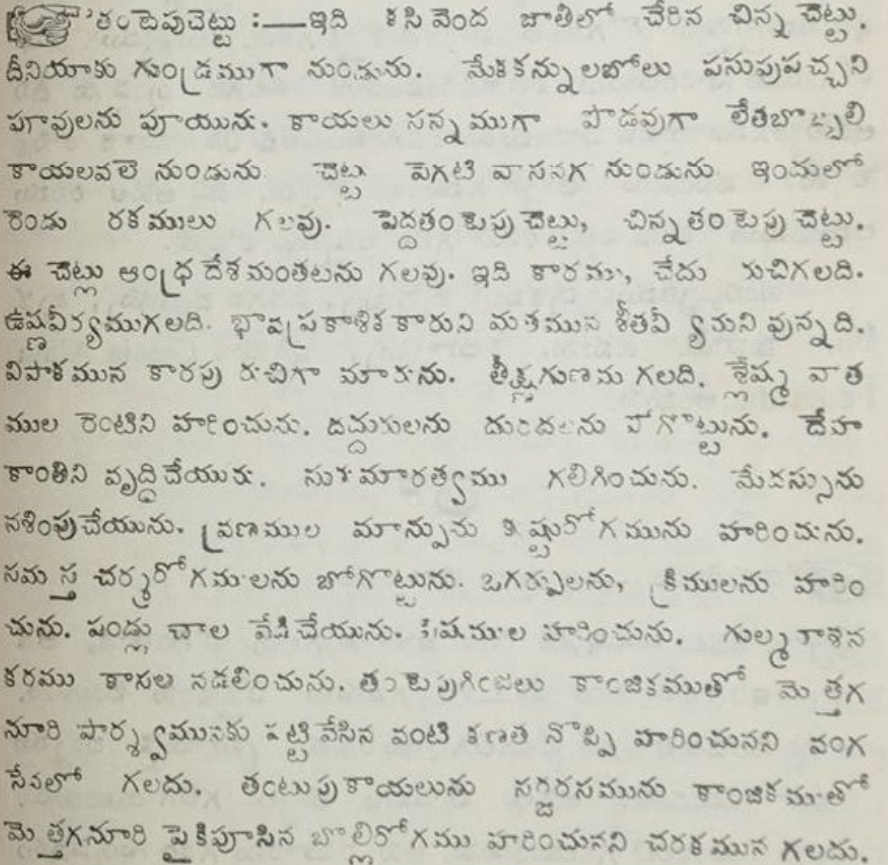 తంటెపుచెట్టు :—ఇది కసివెంద జాతిలో చేరిన చిన్న చెట్టు.
దీనియాకు గుండ్రముగా నుండును. మేకకన్నులబోలు పసుపుపచ్చని
పూవులను పూయును. కాయలు సన్నముగా పొడవుగా లేతబొబ్బలి
కాయలవలె నుండును. చెట్టు వెగటి వాసనగ నుండును. ఇందులో
రెండు రకములు గలవు. పెద్దతంటెపు చెట్టు, చిన్నతంటెపు చెట్టు.
ఈ చెట్లు ఆంధ్రదేశమంతటను గలవు. ఇది కారము, చేదు రుచిగలది.
ఉష్ణవీర్యముగలది. భావప్రకాశికకారుని మతమున శీతవీర్యమని వున్నది.
విపాకమున కారపు రుచిగా మారును. తీక్ష్ణగుణము గలది. శ్లేష్మ వాత
ముల రెంటిని హరించును. దద్దురులను దురదలను పోగొట్టును. దేహ
కాంతిని వృద్ధిచేయును. సుకుమారత్వము గలిగించును. మేదస్సును
నశింపుచేయును. వ్రణముల మాన్పును కుష్టురోగమును హరించును.
సమస్త చర్మరోగములను బోగొట్టును. ఒగర్పులను, క్రిములను హరిం
చును. పండ్లు చాల వేడిచేయును. విషముల హరించును. గుల్మనాశన
కరము కాసల నడలించును. తంటెపుగింజలు కాంజికముతో మెత్తగ
నూరి పార్శ్వమునకు పట్టివేసిన వంటి కణత నొప్పి హరించునని వంగ
సేనలో గలదు. తంటుపుకాయలును సర్జరసమును కాంజికముతో
మెత్తగనూరి పైకిపూసిన బొల్లిరోగము హరించునని చరకమున గలదు.